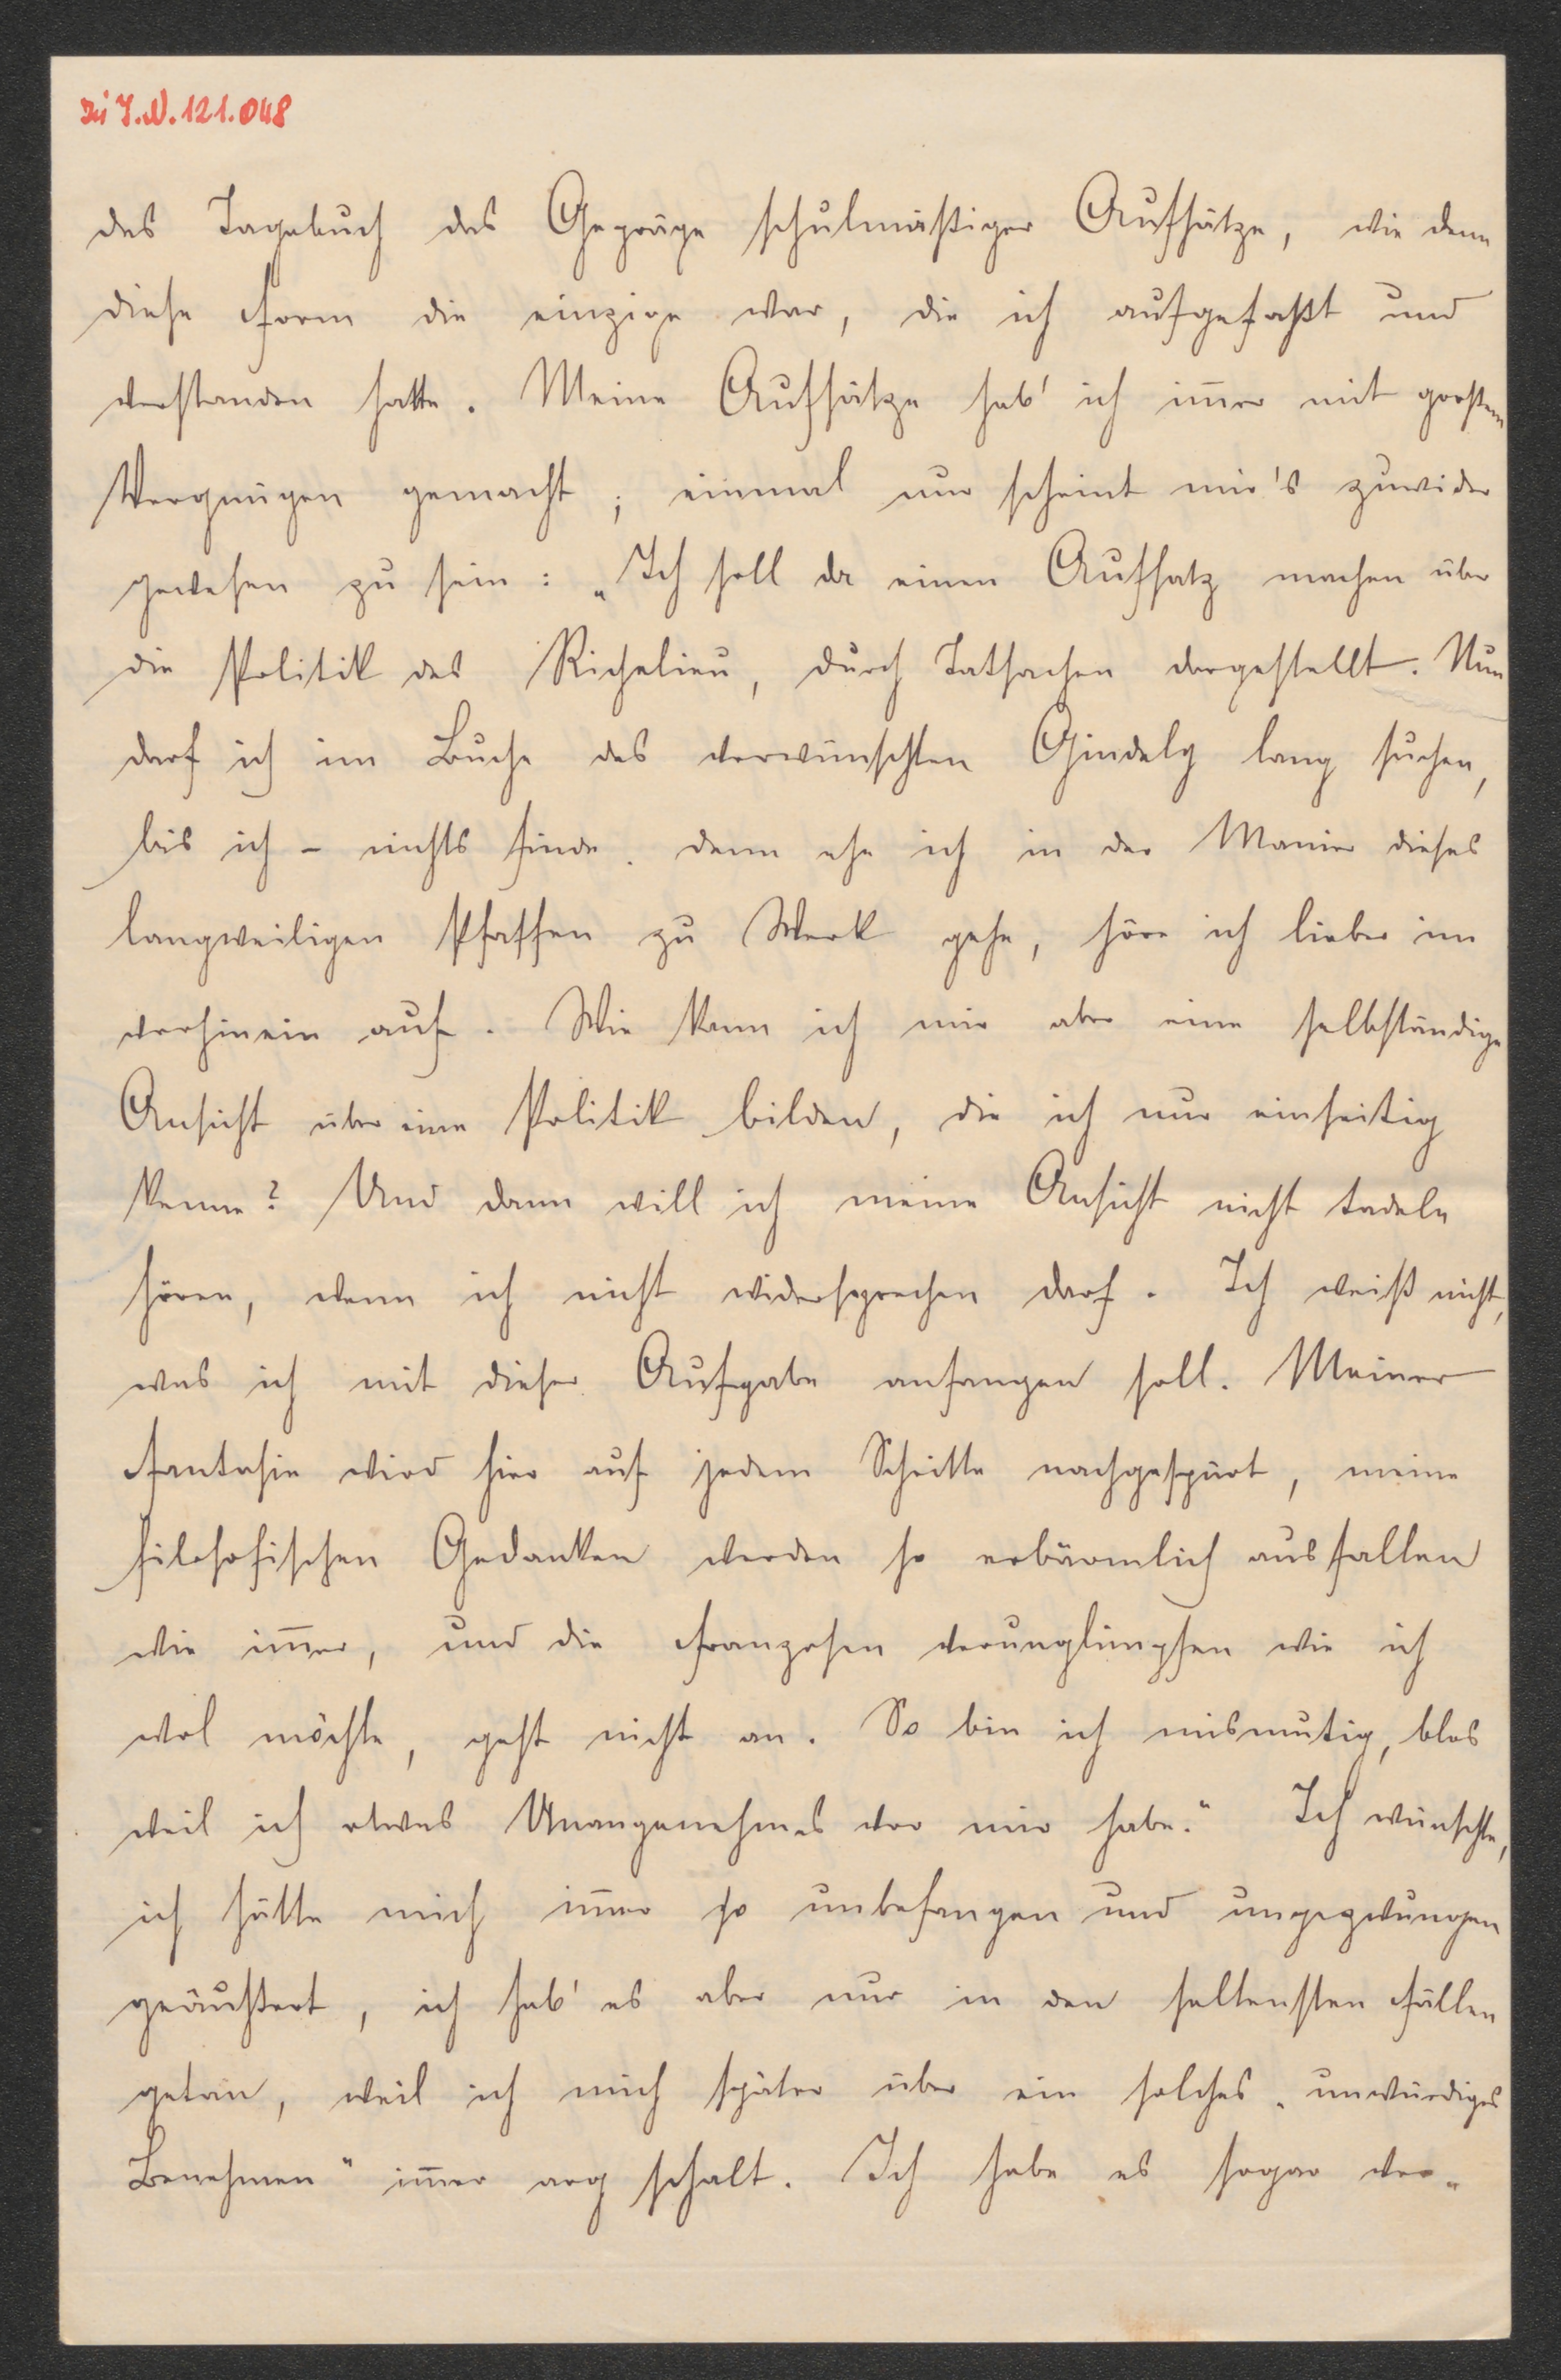 Zu I.N. 121.048
das Tagebuch das Gepräge schulmäßiger Aufsätze, wie denn
diese Form die einzige war, die ich aufgefaßt und
verstanden hatte. Meine Aufsätze hab' ich im̄er mit großem
Vergnügen gemacht; einmal nur scheint mir's zuwider
gewesen zu sein: „Ich soll da einen Aufsatz machen über
die Politik des Richelieu, durch Tatsachen dargestellt. Nun
darf ich im Buche des verwünschten Gindely lang suchen,
bis ich – nichts finde. denn ehe ich in der Manier dieses
langweiligen Pfaffen zu Werk gehe, höre ich lieber im
vorhinein auf. Wie kann ich mir aber eine selbständige
Ansicht über eine Politik bilden, die ich nur einseitig
kenne? Und dann will ich meine Ansicht nicht tadeln
hören, wenn ich nicht widersprechen darf. Ich weiß nicht,
was ich mit dieser Aufgabe anfangen soll. Meiner
Fantasie wird hier auf jedem Schritte nachgespürt, meine
filosofischen Gedanken werden so erbärmlich ausfallen
wie im̄er, und die Franzosen verunglimpfen wie ich
wol möchte, geht nicht an. So bin ich mismutig, blos
weil ich etwas Unangenehmes vor mir habe.“ Ich wünschte,
ich hätte mich im̄er so unbefangen und ungezwungen
geäußert, ich hab' es aber nur in den seltensten Fällen
getan, weil ich mich später über ein solches „unwürdiges
Benehmen“ im̄er arg schalt. Ich habe es sogar ver-